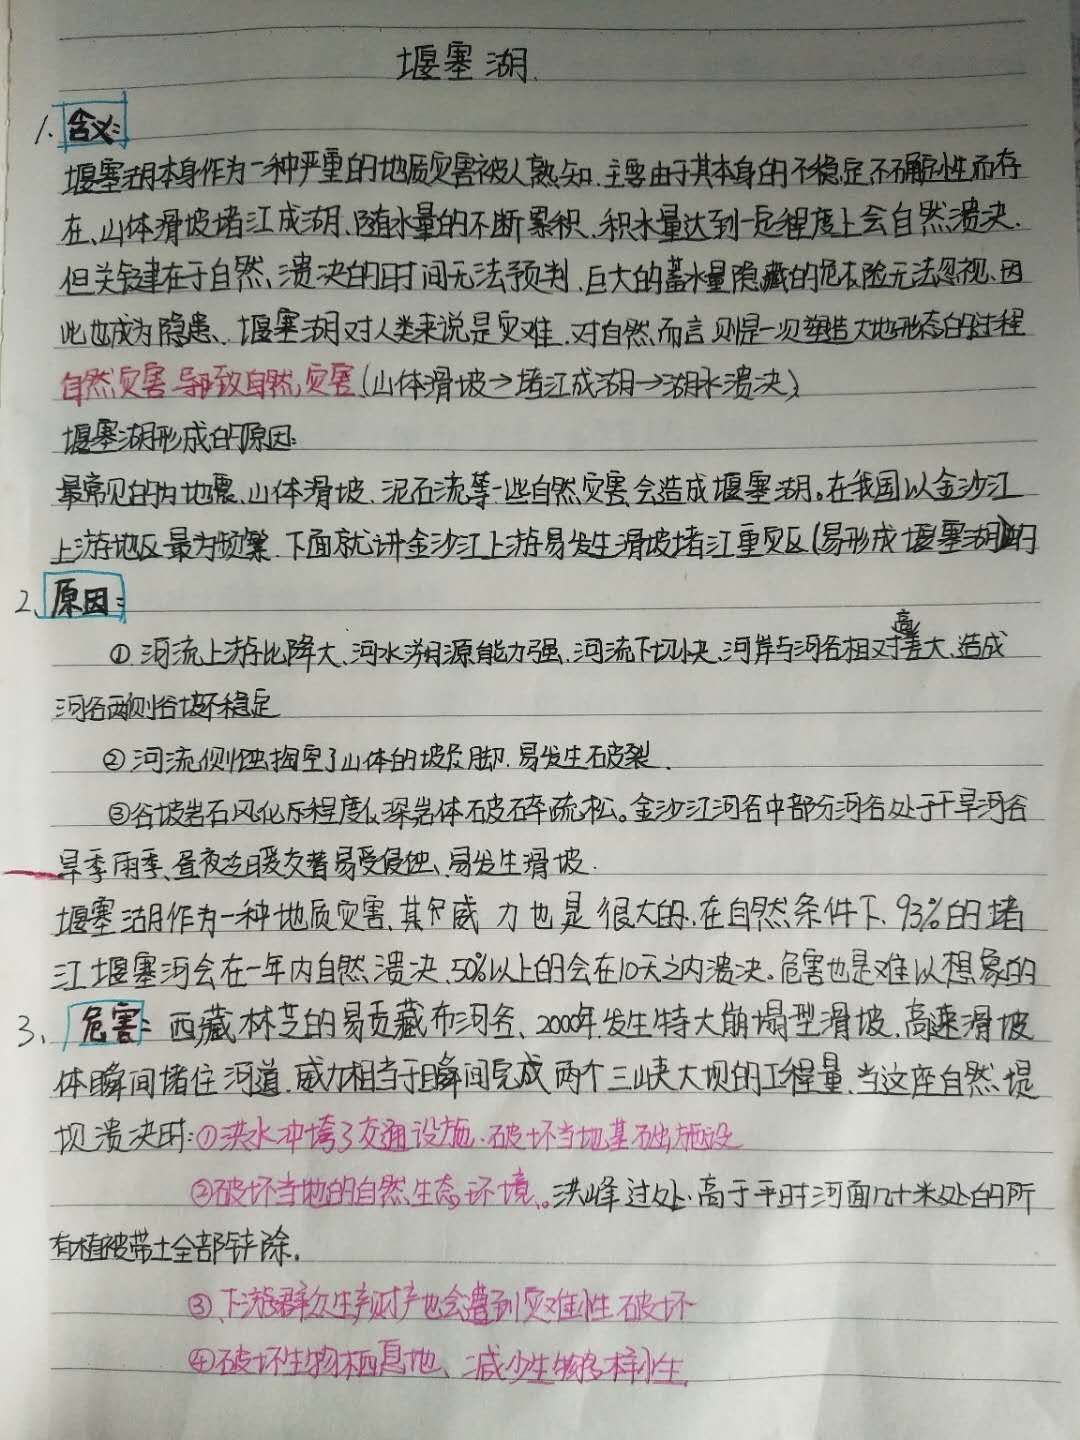 堰塞湖.
1. 含义:
堰塞湖本身作为一种严重的地质灾害被人熟知.主要由于其本身的不稳定不确定性而存
在、山体滑坡堵江成湖、随水量的不断累积、积水量达到一定程度上会自然溃决.
但关键在于自然、溃决的时间无法预判.巨大的蓄水量隐藏的危险无法忽视、因
此也成为隐患、堰塞湖对人类来说是灾难.对自然而言则是一次塑造大地形态的过程
自然灾害导致自然灾害(山体滑坡→堵江成湖→湖水溃决)
堰塞湖形成的原因:
最常见的为地震、山体滑坡、泥石流等一些自然灾害会造成堰塞湖。在我国以金沙江
上游地区最为频繁.下面就讲金沙江上游易发生滑坡堵江重灾区(易形成堰塞湖)的
2、原因:
①.河流上游比降大、河水溯源能力强、河流下切快、河岸与河谷相对高差大、造成
河谷两侧谷坡不稳定
②河流侧蚀掏空了山体的坡脚.易发生破裂.
③谷坡岩石风化程度深岩体破碎疏松。金沙江河谷中部分河谷处于干旱河谷
旱季雨季、昼夜冷暖交替易受侵蚀、易发生滑坡.
堰塞湖作为一种地质灾害、其威力也是很大的、在自然条件下、93%的堵
江堰塞河会在一年内自然溃决、50%以上的会在10天之内溃决。危害也是难以想象的
3、危害:西藏林芝的易贡藏布河谷、2000年发生特大崩塌型滑坡、高速滑坡
体瞬间堵住河道.威力相当于瞬间完成两个三峡大坝的工程量.当这座自然堤
坝溃决时:①洪水冲垮了交通设施.破坏当地基础施设
②破坏当地的自然生态环境。洪峰过处.高于平时河面几十米处的所
有植被带土全部铲除.
③、下游群众生产财产也会遭到灾难性破坏
④破坏生物栖息地、减少生物多样性.